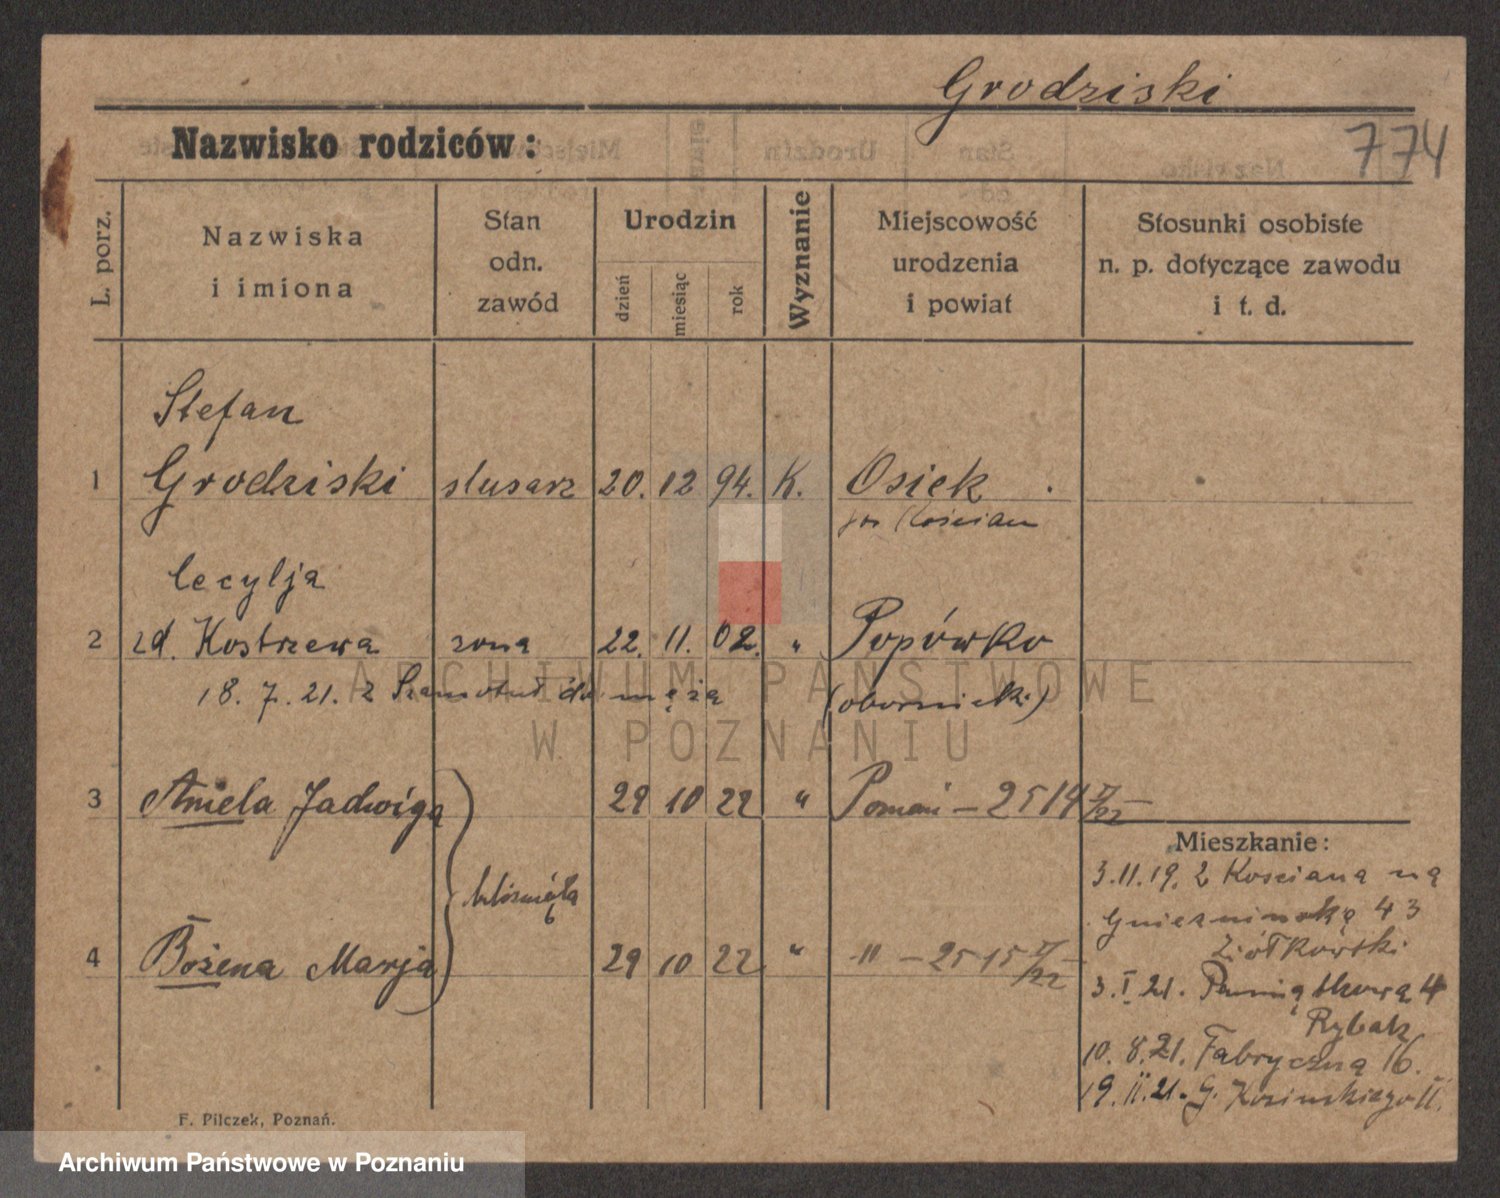 Grodziski
Nazwisko rodziców:
774
L. porz.
Nazwiska
i imiona
Stan
odn.
zawód
Urodzin
dzień
miesiąc
rok
Wyznanie
Miejscowość
urodzenia
i powiat
Stosunki osobiste
n. p. dotyczące zawodu
i t. d.
Stefan
1 Grodziski ślusarz 20. 12 94. K. Osiek
Kościan
Cecylja
2 zd. Kostrzewa żona 22. 11. 02. " Popówko
18. 7. 21. z Szamotuł do męża (obornicki)
3 Aniela Jadwiga 29 10 22 " Poznań - 2514 V/22
bliźnięta
4 Bożena Marja 29 10 22 " " - 2515 V/22
Mieszkanie:
3.11.19. z Kościana na
Gnieźnieńską 43
Ziółkowski
3. I. 21. Pamiątkowa 4
Rybak
10. 8. 21. Fabryczna 16.
19. II. 21. G. Kosińskiego 11.
F. Pilczek, Poznań.
ARCHIWUM PAŃSTWOWE
W POZNANIU
Archiwum Państwowe w Poznaniu